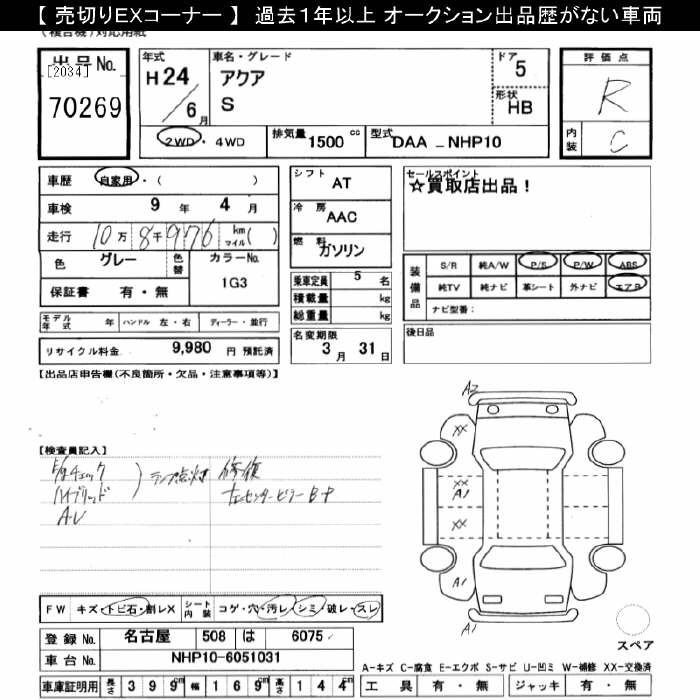 【 売切りEXコーナー 】 過去1年以上 オークション出品歴がない車両
(複合機)対応用紙
出品No.
[2034]
70269
年式
H24
/6月
車名・グレード
アクア
S
ドア
5
形状
HB
評価点
R
内装
C
2WD・4WD
排気量 1500 cc
型式 DAA - NHP10
車歴 自家用・( )
車検 9 年 4 月
走行 10万 8千 976 km マイル( )
色 グレー 色替 カラーNo.
1G3
保証書 有・無
シフト AT
冷房 AAC
燃料 ガソリン
乗車定員 5 名
積載量 kg
総重量 kg
セールスポイント
☆買取店出品！
装備品
S/R 純A/W P/S P/W ABS
純TV 純ナビ 革シート 外ナビ エアB
ナビ型番:
モデル年式 年 ハンドル 左・右 ディーラー・並行
リサイクル料金 9,980 円 預託済
名変期限
3 月 31 日
後日品
【出品店申告欄(不良箇所・欠品・注意事項等)】
【検査員記入】
チェック
ハイブリッド
ランプ点灯
修復
左センターピラーBP
A2
XX
XX
A1
XX
A1
A1
スペア
FW キズ・トビ石・割レX シート内装 コゲ・穴・汚レ・シミ・破レ・スレ
登録No. 名古屋 508 は 6075
車台No. NHP10-6051031
車庫証明用 長さ 399cm 幅 169cm 高さ 144cm
A-キズ C-腐食 E-エクボ S-サビ U-凹ミ W-補修 XX-交換済
工具 有・無 ジャッキ 有・無